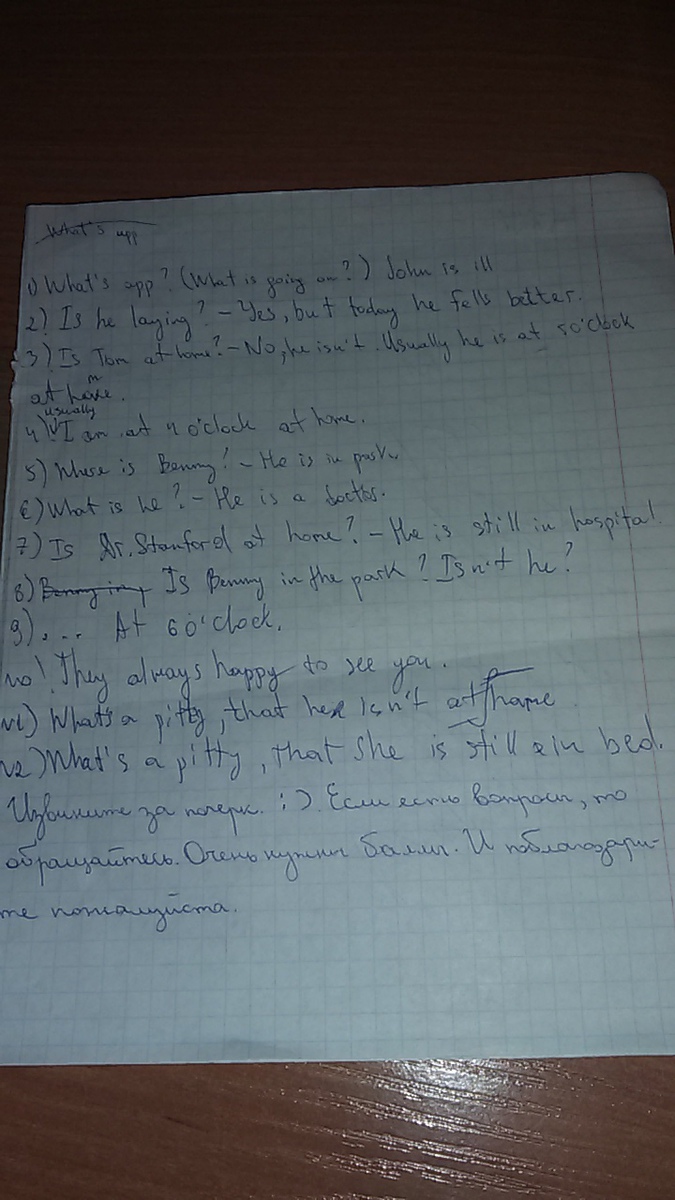 What's app
1) What's app? (What is going on?) John is ill
2) Is he laying? - Yes, but today he fells better.
3) Is Tom at home? - No, he isn't. Usually he is at 5 o'clock
at home.
usually
4) I am at 4 o'clock at home.
5) Where is Benny? - He is in park.
6) What is he? - He is a doctor.
7) Is Dr. Stanford at home? - He is still in hospital.
8) Benny in Is Benny in the park? Isn't he?
9) ... At 6 o'clock.
10) They always happy to see you.
11) What's a pitty, that he isn't at home
12) What's a pitty, that she is still in bed.
Извините за почерк. :) Если есть вопросы, то
обращайтесь. Очень нужны баллы. И поблагодари-
те пожалуйста.